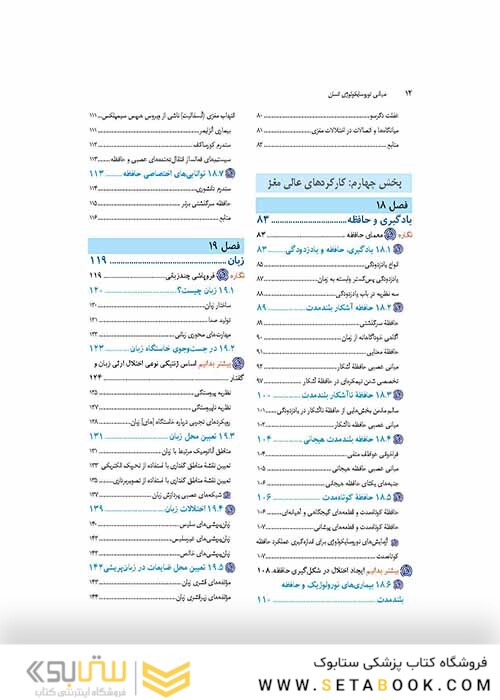 ۱۲ مبانی نوروسایکولوژی انسان
غفلت دگرسو ۸۰
میانگاه‌ها و اتصالات در اختلالات مغزی ۸۱
منابع ۸۲
بخش چهارم: کارکردهای عالی مغز
فصل ۱۸
یادگیری و حافظه ۸۳
نگاره معمای حافظه ۸۳
۱۸.۱ یادگیری، حافظه و یادزدودگی ۸۳
انواع یادزدودگی ۸۵
یادزدودگی پس‌گستر وابسته به زمان ۸۷
سه نظریه در باب یادزدودگی ۸۸
۱۸.۲ حافظه آشکار بلندمدت ۸۹
حافظهٔ سرگذشتی ۸۹
آگاهی خودآگاهانه از زمان ۹۰
حافظهٔ معنایی ۹۱
مبانی عصبی حافظهٔ آشکار ۹۲
تخصصی شدن نیمکره‌ای در حافظهٔ آشکار ۹۷
۱۸.۳ حافظهٔ ناآشکار بلندمدت ۱۰۰
سالم ماندن بخش‌هایی از حافظهٔ ناآشکار در یادزدودگی ۱۰۱
مبانی عصبی حافظه ناآشکار ۱۰۲
۱۸.۴ حافظه بلندمدت هیجانی ۱۰۴
فراخوانی عواطف منفی ۱۰۴
مبانی عصبی حافظه هیجانی ۱۰۵
جنبه‌های یکتای حافظه هیجانی ۱۰۶
۱۸.۵ حافظهٔ کوتاه‌مدت ۱۰۶
حافظهٔ کوتاه‌مدت و قطعه‌های گیجگاهی و آهیانه‌ای ۱۰۶
حافظهٔ کوتاه‌مدت و قطعه‌های پیشانی ۱۰۷
آزمایش‌های نوروسایکولوژی برای اندازه‌گیری عملکرد حافظه
کوتاه‌مدت ۱۰۷
بیشتر بدانیم ایجاد اختلال در شکل‌گیری حافظه ۱۰۸
۱۸.۶ بیماری‌های نورولوژیک و حافظه
بلندمدت ۱۱۰
التهاب مغزی (آنسفالیت) ناشی از ویروس هرپس سیمپلکس ۱۱۱
بیماری آلزایمر ۱۱۱
سندرم کورساکف ۱۱۲
سیستم‌های فعالساز انتقال‌دهنده‌های عصبی و حافظه ۱۱۳
۱۸.۷ توانایی‌های اختصاصی حافظه ۱۱۳
سندرم دانشوری ۱۱۴
حافظه سرگذشتی برتر ۱۱۵
منابع ۱۱۶
فصل ۱۹
زبان ۱۱۹
نگاره فروپاشی چندزبانی ۱۱۹
۱۹.۱ زبان چیست؟ ۱۲۰
ساختار زبان ۱۲۰
تولید صدا ۱۲۱
مهارت‌های محوری زبانی ۱۲۲
۱۹.۲ در جست‌وجوی خاستگاه زبان ۱۲۳
بیشتر بدانیم اساس ژنتیکی نوعی اختلال ارثی زبان و
گفتار ۱۲۴
نظریه پیوستگی ۱۲۵
نظریه ناپیوستگی ۱۲۷
رویکردهای تجربی درباره خاستگاه [های] زبان ۱۲۸
۱۹.۳ تعیین محل زبان ۱۳۱
مناطق آناتومیک مرتبط با زبان ۱۳۱
تعیین نقشهٔ مناطق گفتاری با استفاده از تحریک الکتریکی ۱۳۳
تعیین نقشهٔ مناطق گفتاری با استفاده از تصویربرداری ۱۳۵
شبکه‌های عصبی پردازش زبان ۱۳۷
۱۹.۴ اختلالات زبان ۱۳۹
زبان‌پریشی‌های سلیس ۱۴۰
زبان‌پریشی‌های غیرسلیس ۱۴۱
زبان‌پریشی‌های خالص ۱۴۲
۱۹.۵ تعیین محل ضایعات در زبان‌پریشی ۱۴۲
مؤلفه‌های قشری زبان ۱۴۳
مؤلفه‌های زیرقشری زبان ۱۴۴
فروشگاه کتاب پزشکی ستابوک
WWW.SETABOOK.COM
ستابوک
فروشگاه اینترنتی کتاب